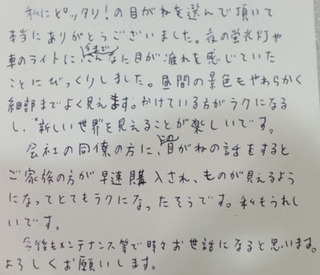 私にピッタリ！の目がねを選んで頂いて
本当にありがとうございました。夜の蛍光灯や
車のライトにこんなに目が疲れを感じていた
ことにびっくりしました。昼間の景色もやわらかく
細部までよく見えます。かけている方がラクになる
し、新しい世界を見えることが楽しいです。
会社の同僚の方に、目がねの話をすると
ご家族の方が早速購入され、ものが見えるように
になってとてもラクになったそうです。私もうれし
いです。
今後もメンテナンス等で時々お世話になると思います。
よろしくお願いします。